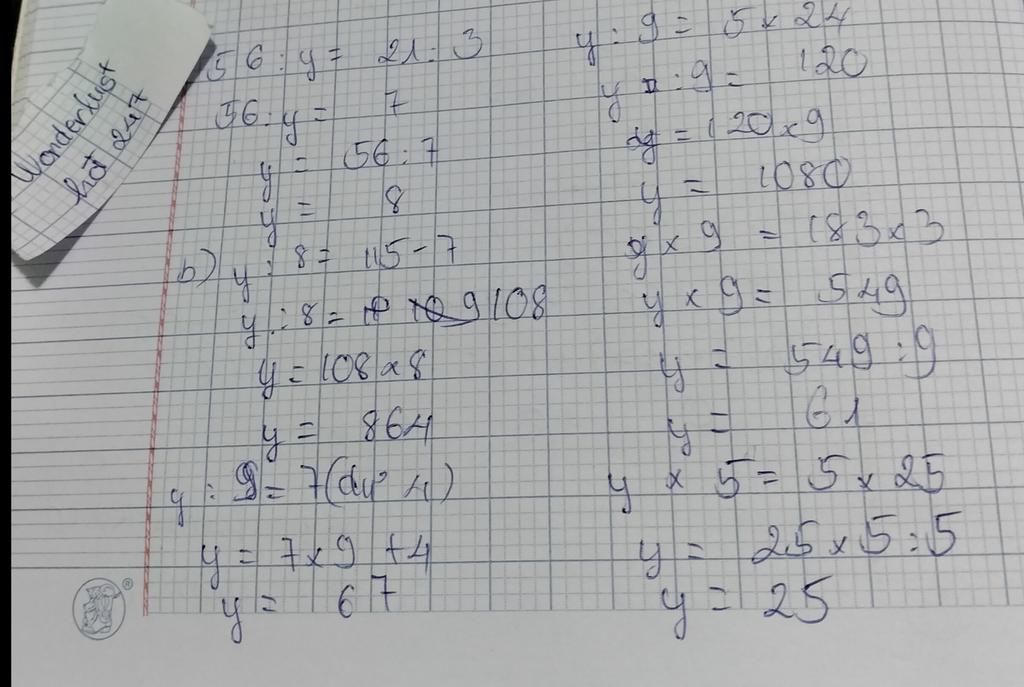 Wonderlust
hót 247
56 : y = 21 : 3
56 : y = 7
y = 56 : 7
y = 8
b) y : 8 = 115 - 7
y : 8 = 108
y = 108 x 8
y = 864
y : 9 = 7 (dư 4)
y = 7 x 9 + 4
y = 67
y : 9 = 5 x 24
y : 9 = 120
y = 120 x 9
y = 1080
y x 9 = 183 x 3
y x 9 = 549
y = 549 : 9
y = 61
y x 5 = 5 x 25
y = 25 x 5 : 5
y = 25